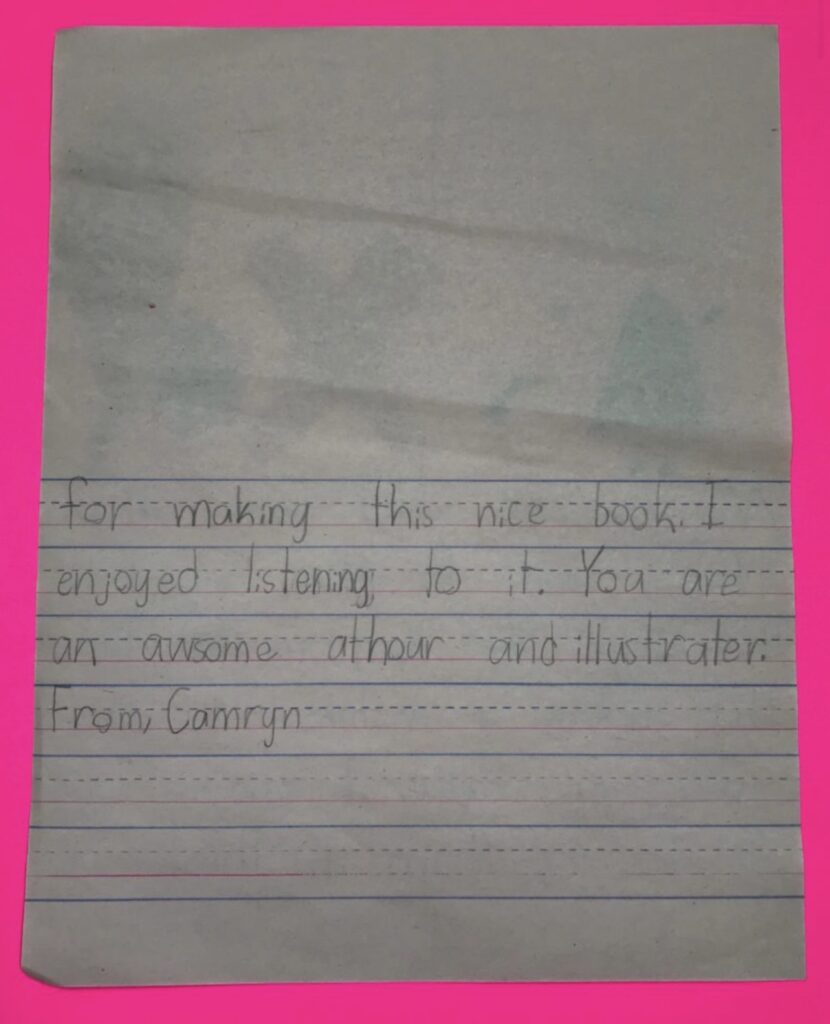 for making this nice book. I
enjoyed listening to it. You are
an awsome athour and illustrater.
From, Camryn